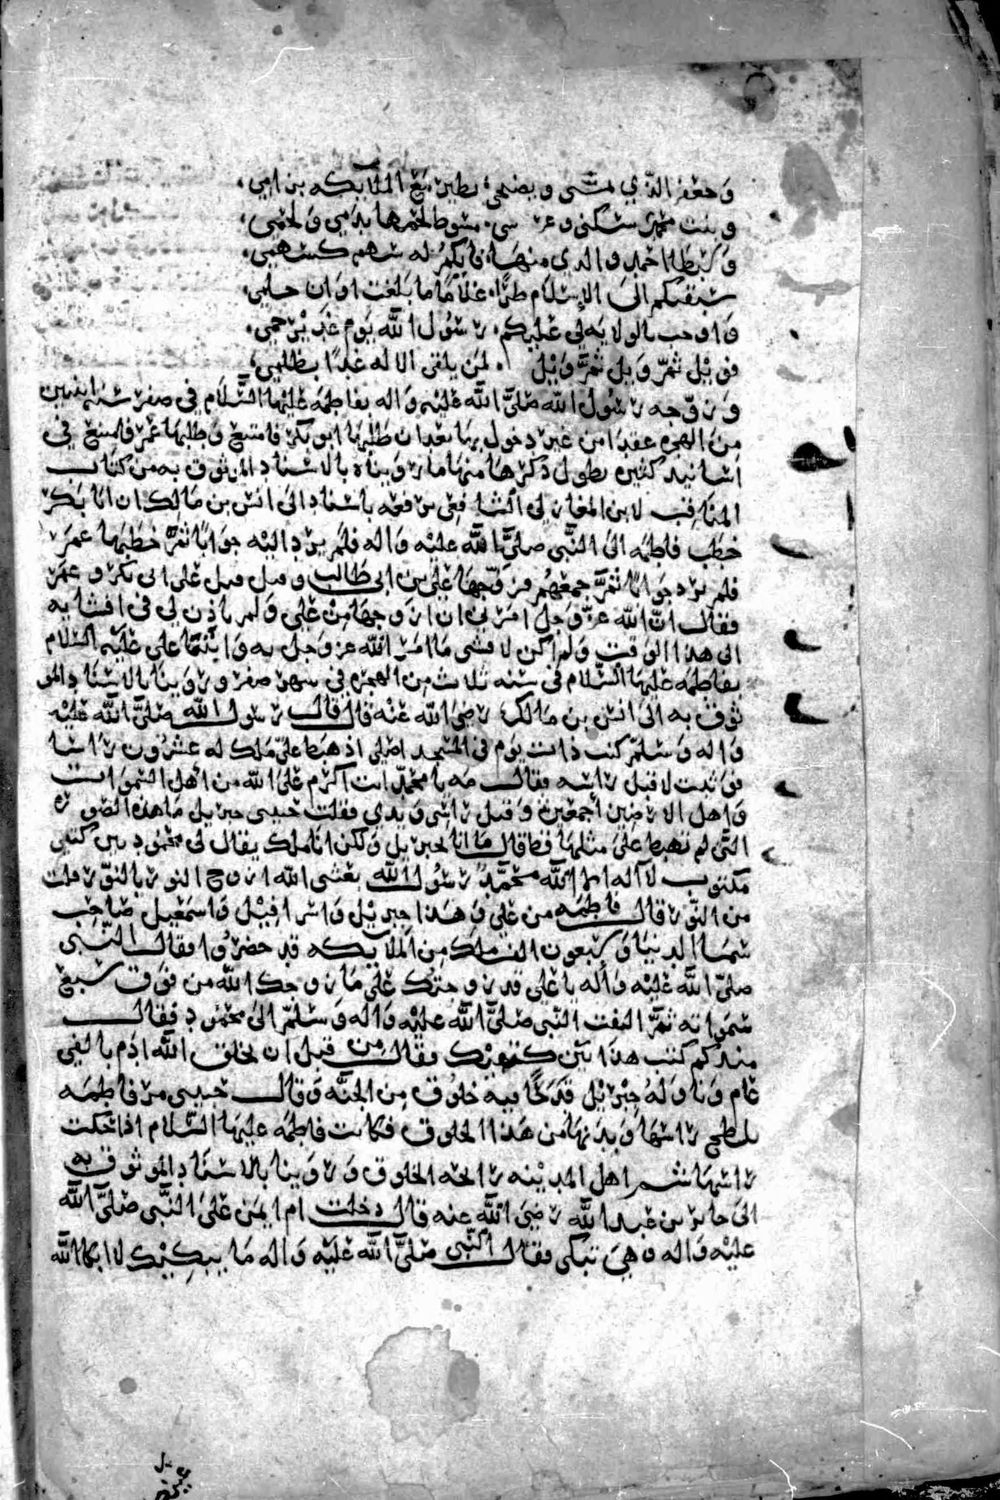 وجعفر الذي يمشي ويضحي، يطير مع الملائكه بن امي،
وبنت محمد سكني وعرسي، منوط لحمها بدمي ولحمي،
وسبطا احمد ولدي منها، فايكم له سهم كسهمي،
سبقتكم الى الاسلام طرا، غلاما ما بلغت اوان حلمي،
واوجب بالولايه لي عليكم، رسول الله يوم غدير خمي،
فويل ثم ويل ثم ويل، لمن يلقى الاله غدا بظلمي،
وزوجه رسول الله صلى الله عليه واله بفاطمه عليها السلام في صفر سنه اثنين
من الهجره عقدا من غير دخول بها بعد ان طلبها ابو بكر فامتنع وطلبها عمر فامتنع في
اسانيد كثيره يطول ذكرها منها ما رويناه بالاسناد الموثوق به من كتاب
المناقب لابن المغازلي الشافعي رفعه باسناده الى انس بن مالك ان ابا بكر
خطب فاطمه الى النبي صلى الله عليه واله فلم يرد اليه جوابا ثم خطبها عمر
فلم يرد جوابا ثم جمعهم فزوجها علي بن ابي طالب وقيل اقبل على ابي بكر وعمر
فقال ان الله عز وجل امرني ان ازوجها من علي ولم ياذن لي في افشائه
الى هذا الوقت ولم اكن لافشي ما امر الله عز وجل به وابتنا علي عليه السلام
بفاطمه عليها السلام في سنه ثلاث من الهجره في شهر صفر وروينا بالاسناد المو
ثوق به الى انس بن مالك رضي الله عنه قال قال رسول الله صلى الله عليه
واله وسلم كنت ذات يوم في المسجد اصلي اذ هبط علي ملك له عشرون راسا
فوثبت لاقبل راسه فقال مه يا محمد انت اكرم على الله من اهل السموات
واهل الارضين اجمعين وقبل راسي ويدي فقلت حبيبي جبريل ما هذه الصوره
التي لم تهبط علي مثلها قط قال ما انا لجبريل ولكن انا ملك يقال لي محمود بين كتفي
مكتوب لا اله الا الله محمد رسول الله بعثني الله ازوج النور بالنور قلت
من النور قال فاطمه من علي وهذا جبريل واسرافيل واسمعيل صاحب
سما الدنيا وسبعون الف ملك من الملايكه قد حضروا فقال النبي
صلى الله عليه واله يا علي قد زوجتك على ما زوجك الله من فوق سبع
سمواته ثم التفت النبي صلى الله عليه واله وسلم الى محمود فقال
منذ كم كتب هذا بين كتفيك فقال من قبل ان يخلق الله ادم بالفي
عام وناوله جبريل قدحا فيه خلوق من الجنه وقال حبيبي مر فاطمه
تلطخ راسها وبدنها من هذا الخلوق فكانت فاطمه عليها السلام اذا حكت
راسها شم اهل المدينه رائحه الخلوق وروينا بالاسناد الموثوق به
الى جابر بن عبد الله رضي الله عنه قال دخلت ام ايمن على النبي صلى الله
عليه واله وهي تبكي فقال النبي صلى الله عليه واله ما يبكيك لا ابكا الله